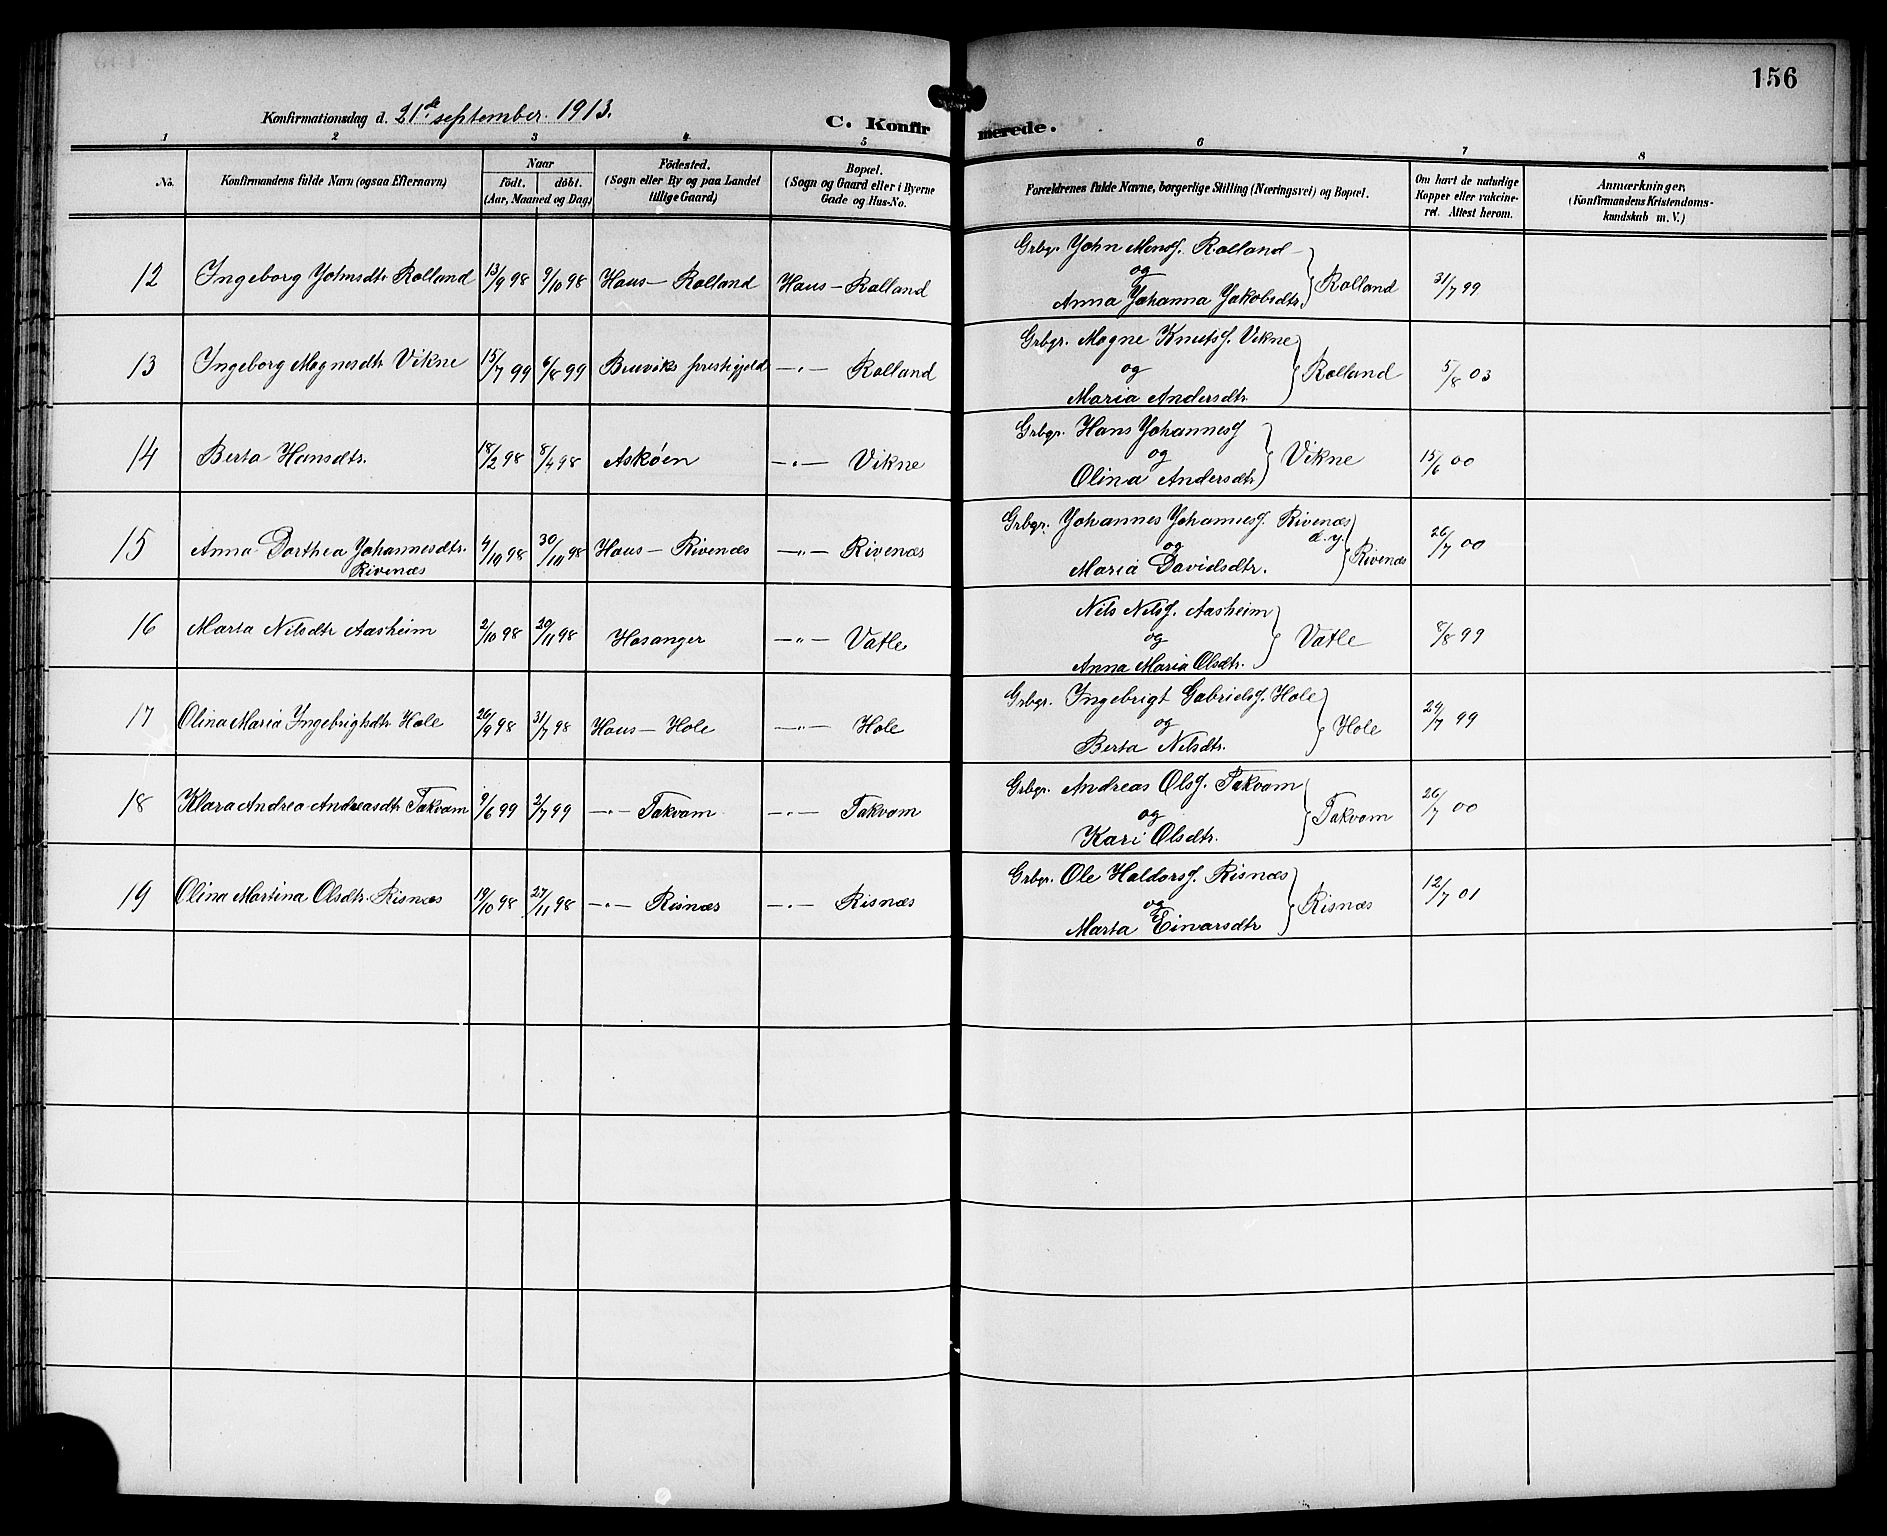 156
Konfirmationsdag d. 21de september. 1913.
C. Konfirmerede.
1 2 3 4 5 6 7 8
No.
Konfirmandens fulde Navn (ogsaa Efternavn)
Naar
født. døbt.
(Aar, Maaned og Dag)
Fødested.
(Sogn eller By og paa Landet
tillige Gaard)
Bopæl.
(Sogn og Gaard eller i Byerne
Gade og Hus-No.
Forældrenes fulde Navne, borgerlige Stilling (Næringsvei) og Bopæl.
Om havt de naturlige
Kopper eller vakcine-
ret. Attest herom.
Anmærkninger,
(Konfirmandens Kristendoms-
kundskab m. V.)
12 Ingeborg Johnsdtr Rolland 13/9 98 9/10 98 Haus — Rolland Haus — Rolland Grbgr. John Monsf. Rolland
og
Anna Johanna Jakobsdtr. } Rolland 31/7 99
13 Ingeborg Magnesdtr Vikne 15/7 99 6/8 99 Bruviks prestigjeld —„— Rolland Grbgr. Magne Knutsf. Vikne
og
Maria Andersdtr. } Rolland 5/8 03
14 Berta Hansdtr. 18/2 98 8/4 98 Askøen —„— Vikne Grbgr. Hans Johannesf
og
Olina Andersdtr } Vikne 15/6 00
15 Anna Dorthea Johannesdtr.
Rivenæs 4/10 98 30/10 98 Haus — Rivenæs —„— Rivenæs Grbgr. Johannes Johannesf. Rivenæs
d.y.
og
Maria Davidsdtr. } Rivenæs 26/7 00
16 Marta Nilsdtr Aasheim 2/10 98 20/11 98 Hosanger —„— Vatle Nils Nilsf. Aasheim
og
Anna Maria Olsdtr. } Vatle 8/8 99
17 Olina Maria Ingebrigtsdtr Hole 20/9 98 31/7 98 Haus — Hole —„— Hole Grbgr. Ingebrigt Gabrielsf. Hole
og
Berta Nilsdtr. } Hole 29/7 99
18 Klara Andrea Andreasdtr Takvam 9/6 99 2/7 99 —„— Takvam —„— Takvam Grbgr. Andreas Olsf. Takvam
og
Kari Olsdtr. } Takvam 26/7 00
19 Olina Martina Olsdtr. Risnæs 19/10 98 27/11 98 —„— Risnæs —„— Risnæs Grbgr. Ole Haldorsf. Risnæs
og
Marta Einarsdtr } Risnæs 12/7 01